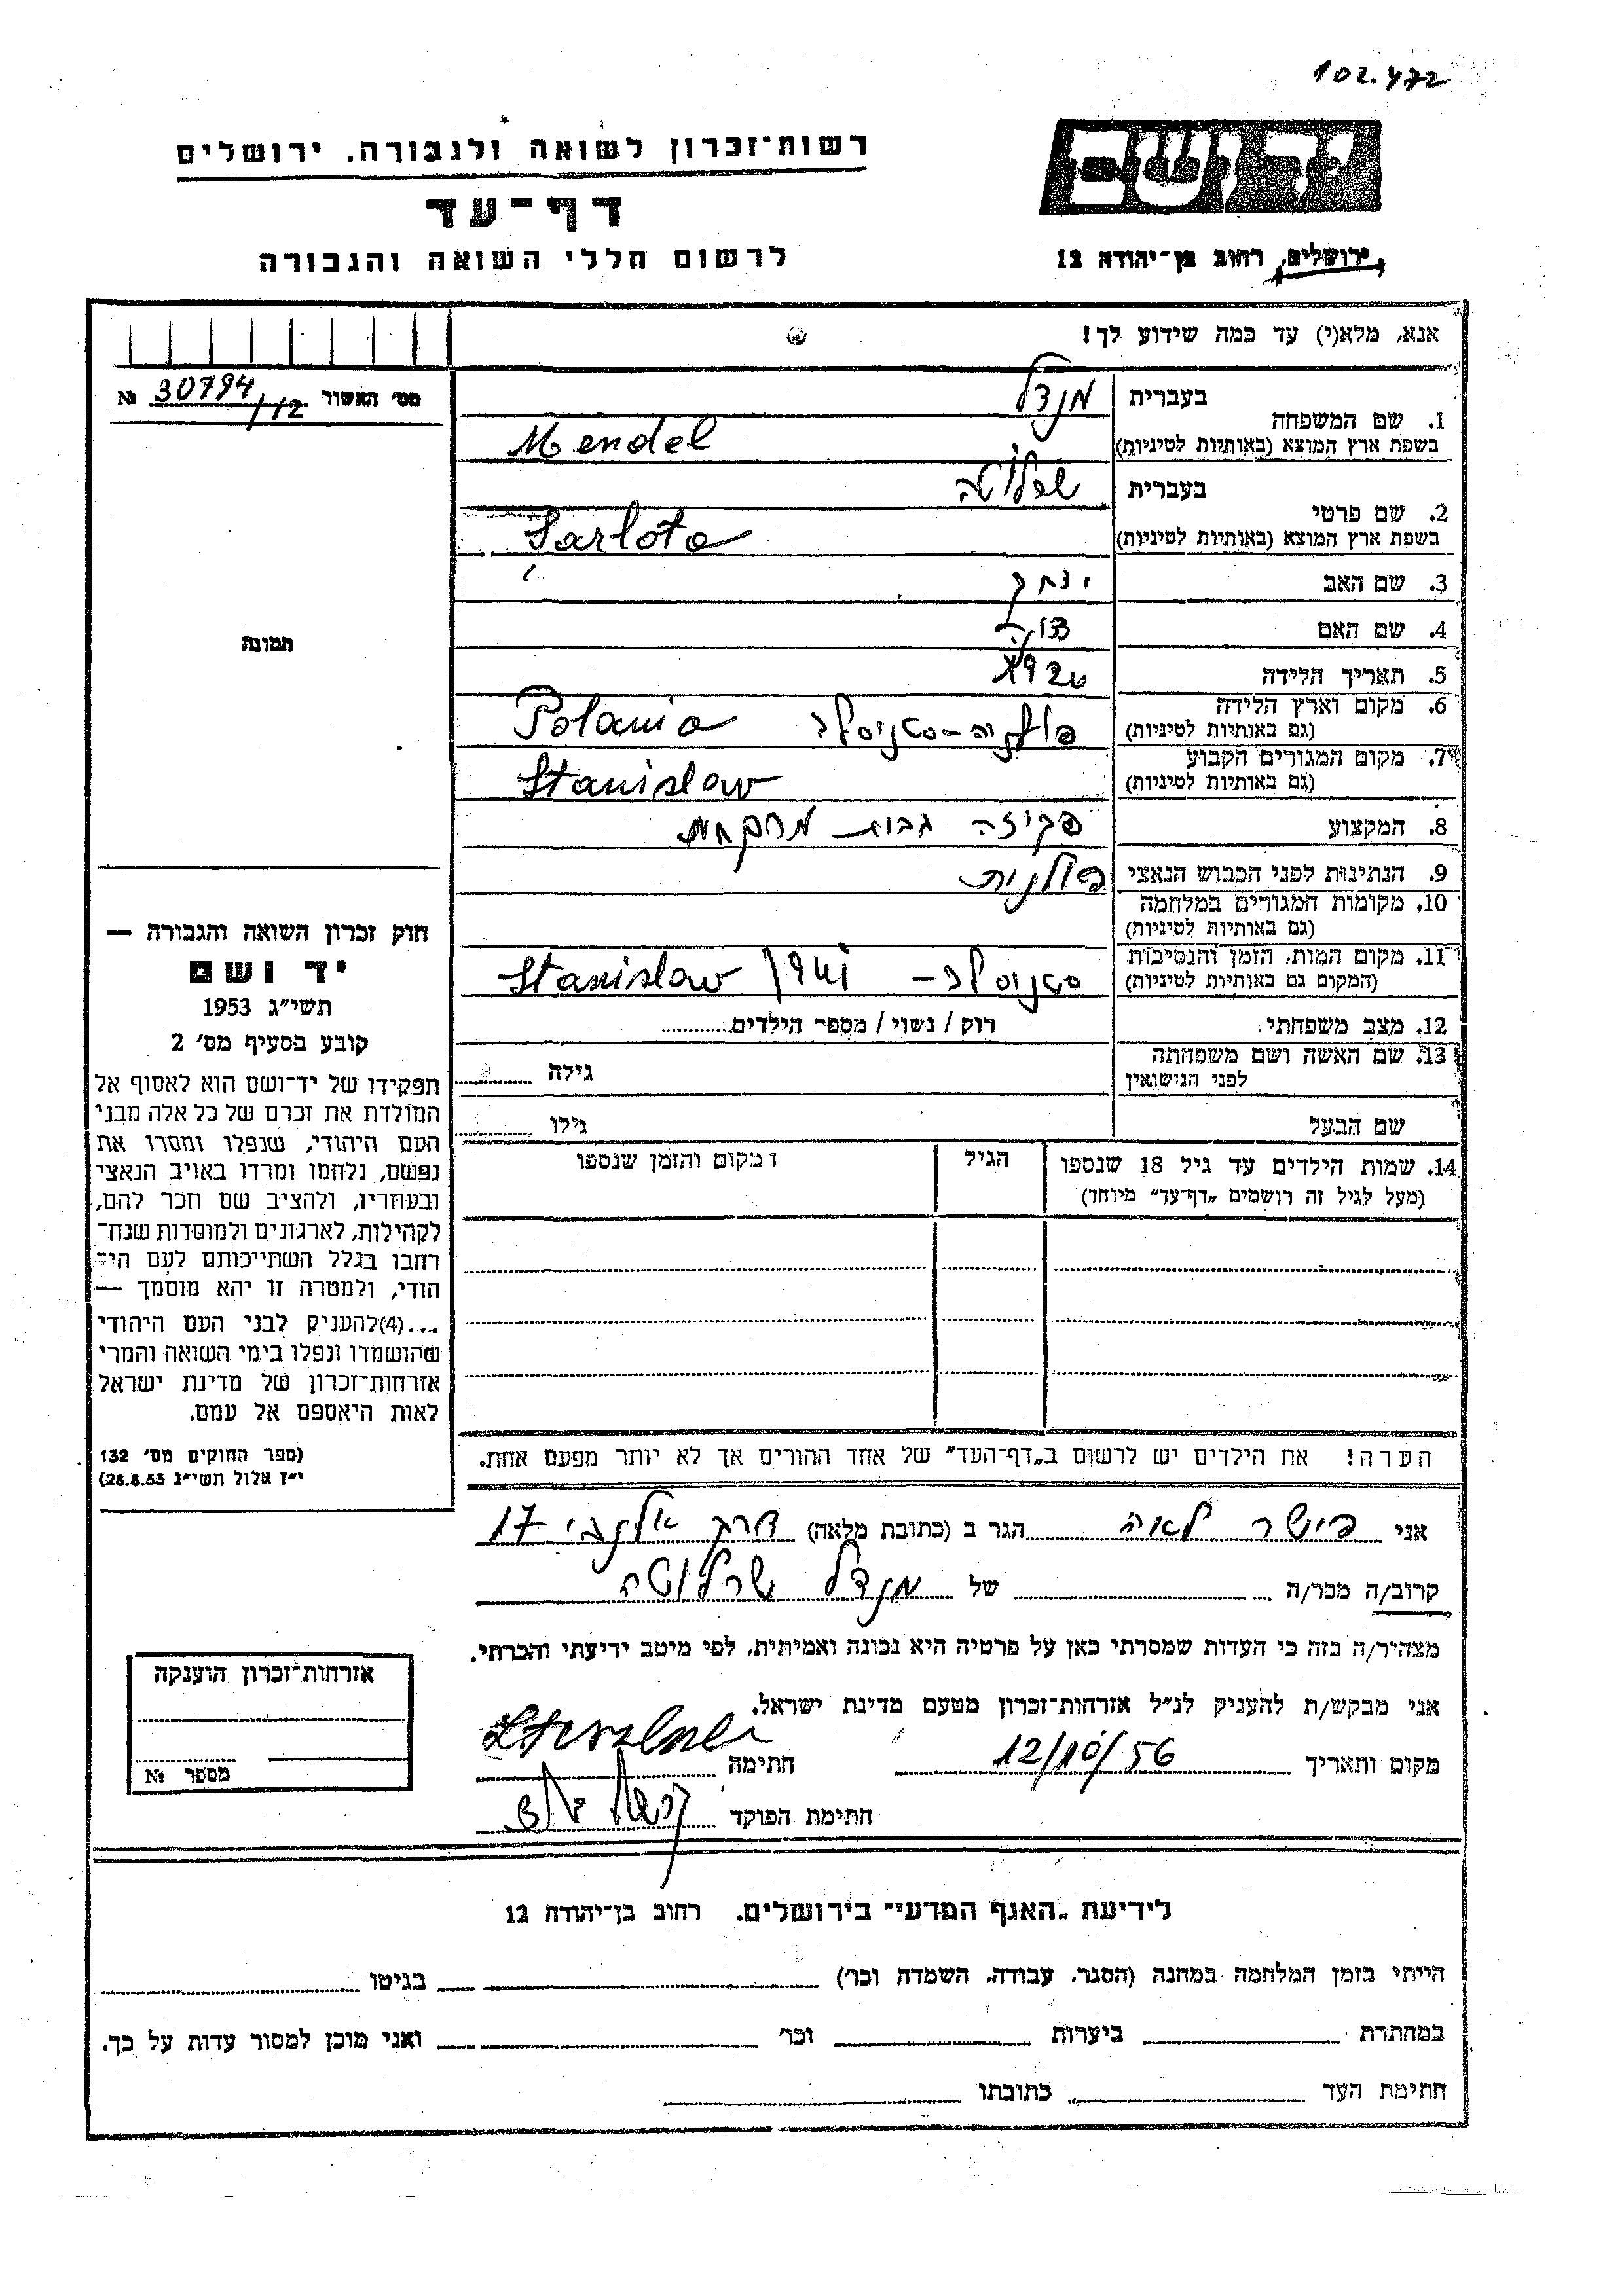 102.472
יד ושם
רשות־זכרון לשואה ולגבורה. ירושלים
דף־עד
לרשום חללי השואה והגבורה
ירושלים, רחוב בן־יהודה 12
אנא, מלא(י) עד כמה שידוע לך!
מס׳ האשור 30794/12 №
1. שם המשפחה
בעברית מנדל
בשפת ארץ המוצא (באותיות לטיניות) Mendel
2. שם פרטי
בעברית שרלוטה
בשפת ארץ המוצא (באותיות לטיניות) Šarlota
3. שם האב יצחק
4. שם האם
5. תאריך הלידה
6. מקום וארץ הלידה פולניה – סטניסלב Polania
(גם באותיות לטיניות)
7. מקום המגורים הקבוע Stanislaw
(גם באותיות לטיניות)
8. המקצוע פקידה
9. הנתינות לפני הכבוש הנאצי פולנית
10. מקומות המגורים במלחמה
(גם באותיות לטיניות)
11. מקום המות, הזמן והנסיבות סטניסלב – Stanislaw
(המקום גם באותיות לטיניות)
12. מצב משפחתי. רוק / נשוי / מספר הילדים
13. שם האשה ושם משפחתה
לפני הנישואין
גילה
שם הבעל גילו
14. שמות הילדים עד גיל 18 שנספו הגיל מקום והזמן שנספו
(מעל לגיל זה רושמים „דף־עד״ מיוחד)
תמונה
חוק זכרון השואה והגבורה —
יד ושם
תשי״ג 1953
קובע בסעיף מס׳ 2
תפקידו של יד־ושם הוא לאסוף אל
המולדת את זכרם של כל אלה מבני
העם היהודי, שנפלו ומסרו את
נפשם, נלחמו ומרדו באויב הנאצי
ובעוזריו, ולהציב שם וזכר להם,
לקהילות, לארגונים ולמוסדות שנח־
רחבו בגלל השתייכותם לעם הי־
הודי, ולמטרה זו יהא מוסמך —
...(4)להעניק לבני העם היהודי
שהושמדו ונפלו בימי השואה והמרי
אזרחות־זכרון של מדינת ישראל
לאות היאספם אל עמם.
(ספר החוקים מס׳ 132
י״ז אלול תשי״ג 28.8.53)
הערה! את הילדים יש לרשום ב„דף־העד״ של אחד ההורים אך לא יותר מפעם אחת.
אני פישר לאה הגר ב (כתובת מלאה) דרך אלנבי 17
קרוב/ה מכר/ה של מנדל שרלוטה
מצהיר/ה בזה כי העדות שמסרתי כאן על פרטיה היא נכונה ואמיתית, לפי מיטב ידיעתי והכרתי.
אני מבקש/ת להעניק לנ״ל אזרחות־זכרון מטעם מדינת ישראל.
מקום ותאריך 12/10/56 חתימה
חתימת הפוקד
אזרחות־זכרון הוענקה
מספר №
לידיעת „האגף המדעי״ בירושלים. רחוב בן־יהודה 12
הייתי בזמן המלחמה במחנה (הסגר, עבודה, השמדה וכר׳) בגיטו
במחתרת ביערות וכר׳ ואני מוכן למסור עדות על כך.
חתימת העד כתובתו